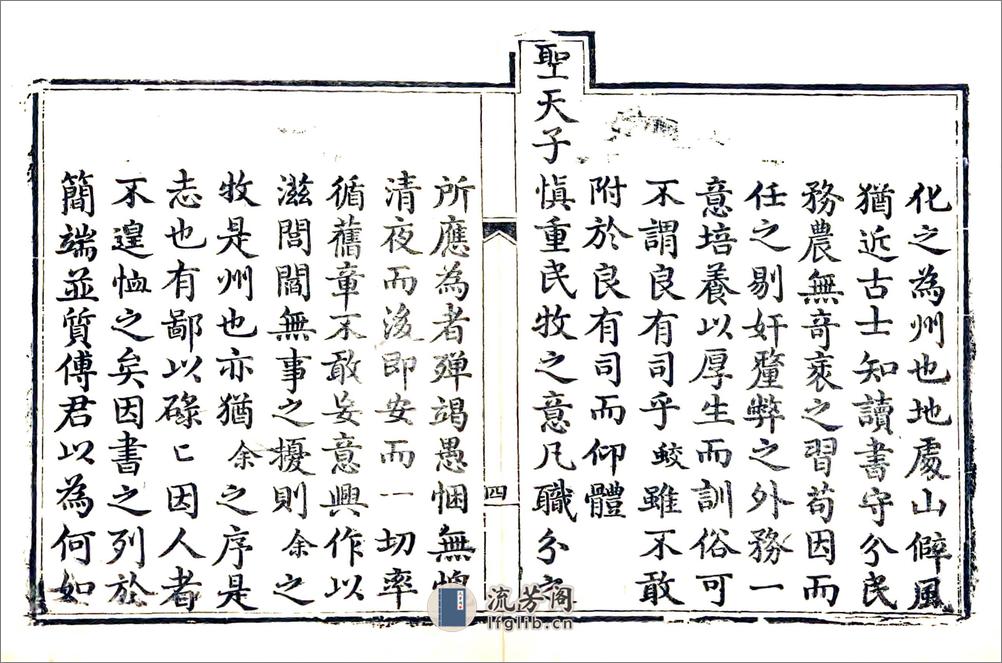 化之為州也地處山僻風
猶近古士知讀書守分民
務農無竒衺之習苟因而
任之剔奸釐弊之外務一
意培養以厚生而訓俗可
不謂良有司乎蛟雖不敢
附於良有司而仰體
聖天子慎重民牧之意凡職分之
四
所應為者殫竭愚悃無愧
清夜而後即安而一切率
循舊章不敢妄意興作以
滋閭閻無事之擾則余之
牧是州也亦猶余之序是
志也有鄙以碌〻因人者
不遑恤之矣因書之列於
簡端並質傅君以為何如
流芳阁
lfglib.cn